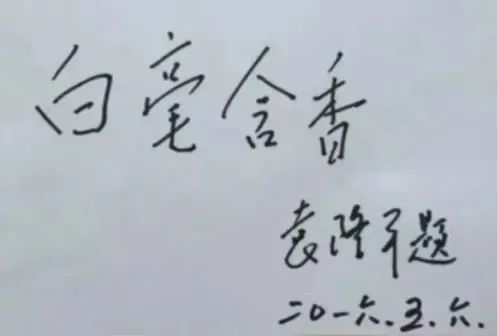 白毫含香
袁隆平题
二〇一六.五.六.